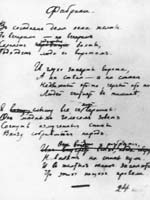 Фабрика.
В соседнем доме окна жолты.
По вечерам — по вечерам
Скрипят болты,
Подходят люди к воротам.
И глухо заперты ворота,
А на стене — а на стене
Недвижный кто-то, черный кто-то
Людей считает в тишине.
Я с моей вершины:
Он медным голосом зовет
Согнуть измученные спины
Внизу собравшийся народ.
Навалят на спины кули
И в желтых окнах засмеются,
Что этих нищих провели.
24